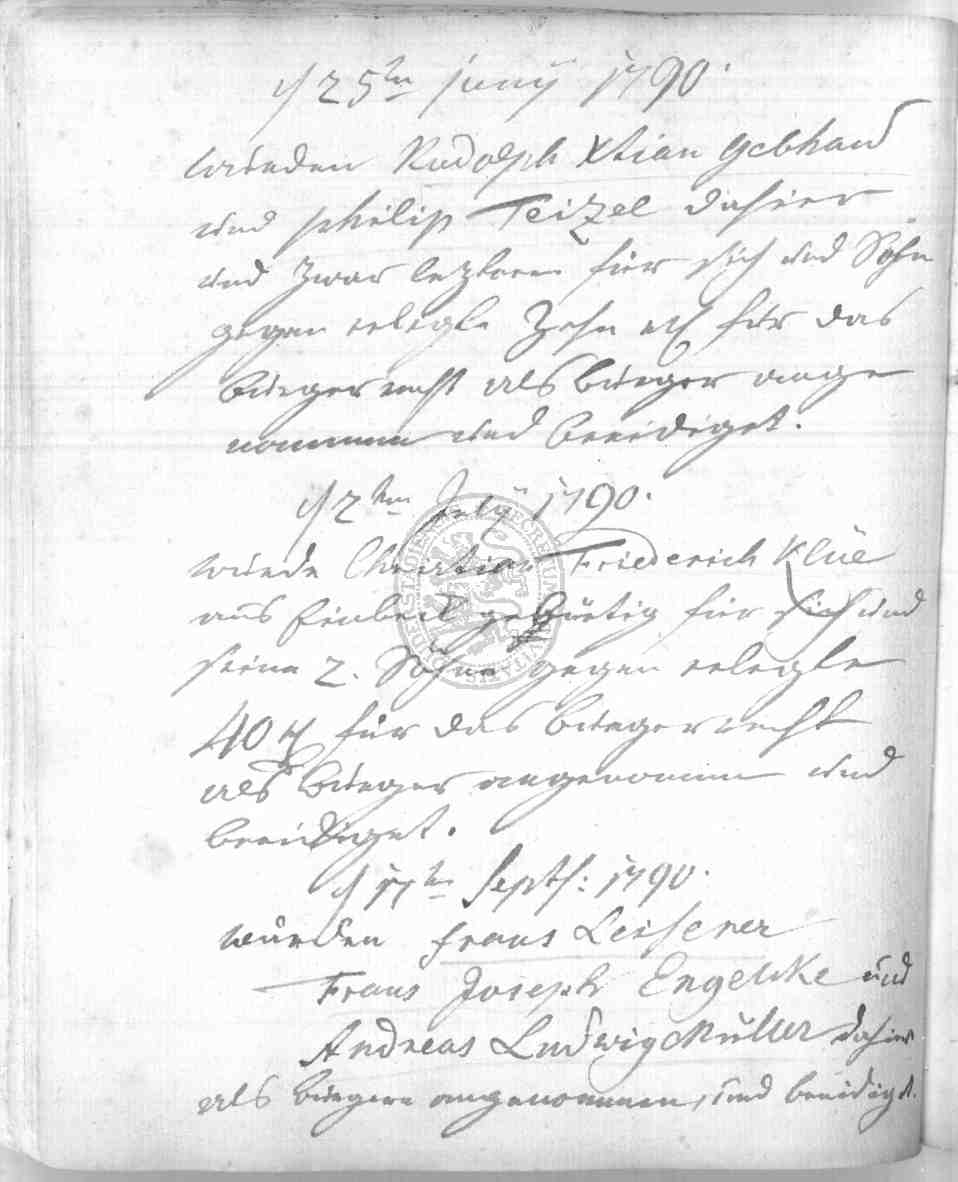 d 25ten Juny 1790.
wurden Rudolph Xtian Gebhard
und Philip Teizel dahier
und zwar lezterer für sich und Sohn
gegen erlegte Zehn für das
bürgerrecht als bürger ange
nommen und beeidiget.
d 2ten July 1790.
wurde Christian Friederich Klüe
aus Einbeck gebürtig für sich und
seine 2. Söhne gegen erlegte
40 für das bürgerrecht
als bürger angenommen und
beeidiget.
d 17ten Septb: 1790.
wurden Frans Leisener
Frans Joseph Engelcke und
Andreas Ludwig Müller dahier
als bürgere angenommen, und beeidigt.